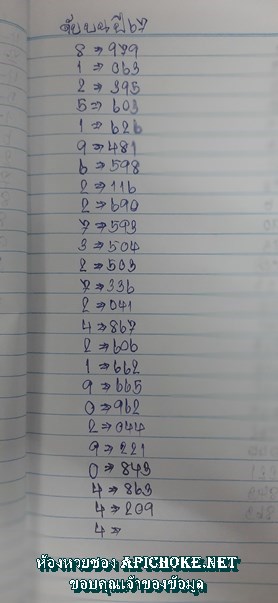 จับบนปี67
8 => 979
1 => 063
2 => 395
5 => 603
1 => 626
9 => 481
6 => 598
2 => 116
2 => 690
7 => 593
3 => 504
2 => 503
7 => 336
2 => 041
4 => 867
2 => 606
1 => 662
9 => 665
0 => 962
2 => 044
9 => 221
0 => 843
4 => 863
4 => 209
4 =>
ห้องหวยซอง APICHOKE.NET
ขอบคุณเจ้าของข้อมูล